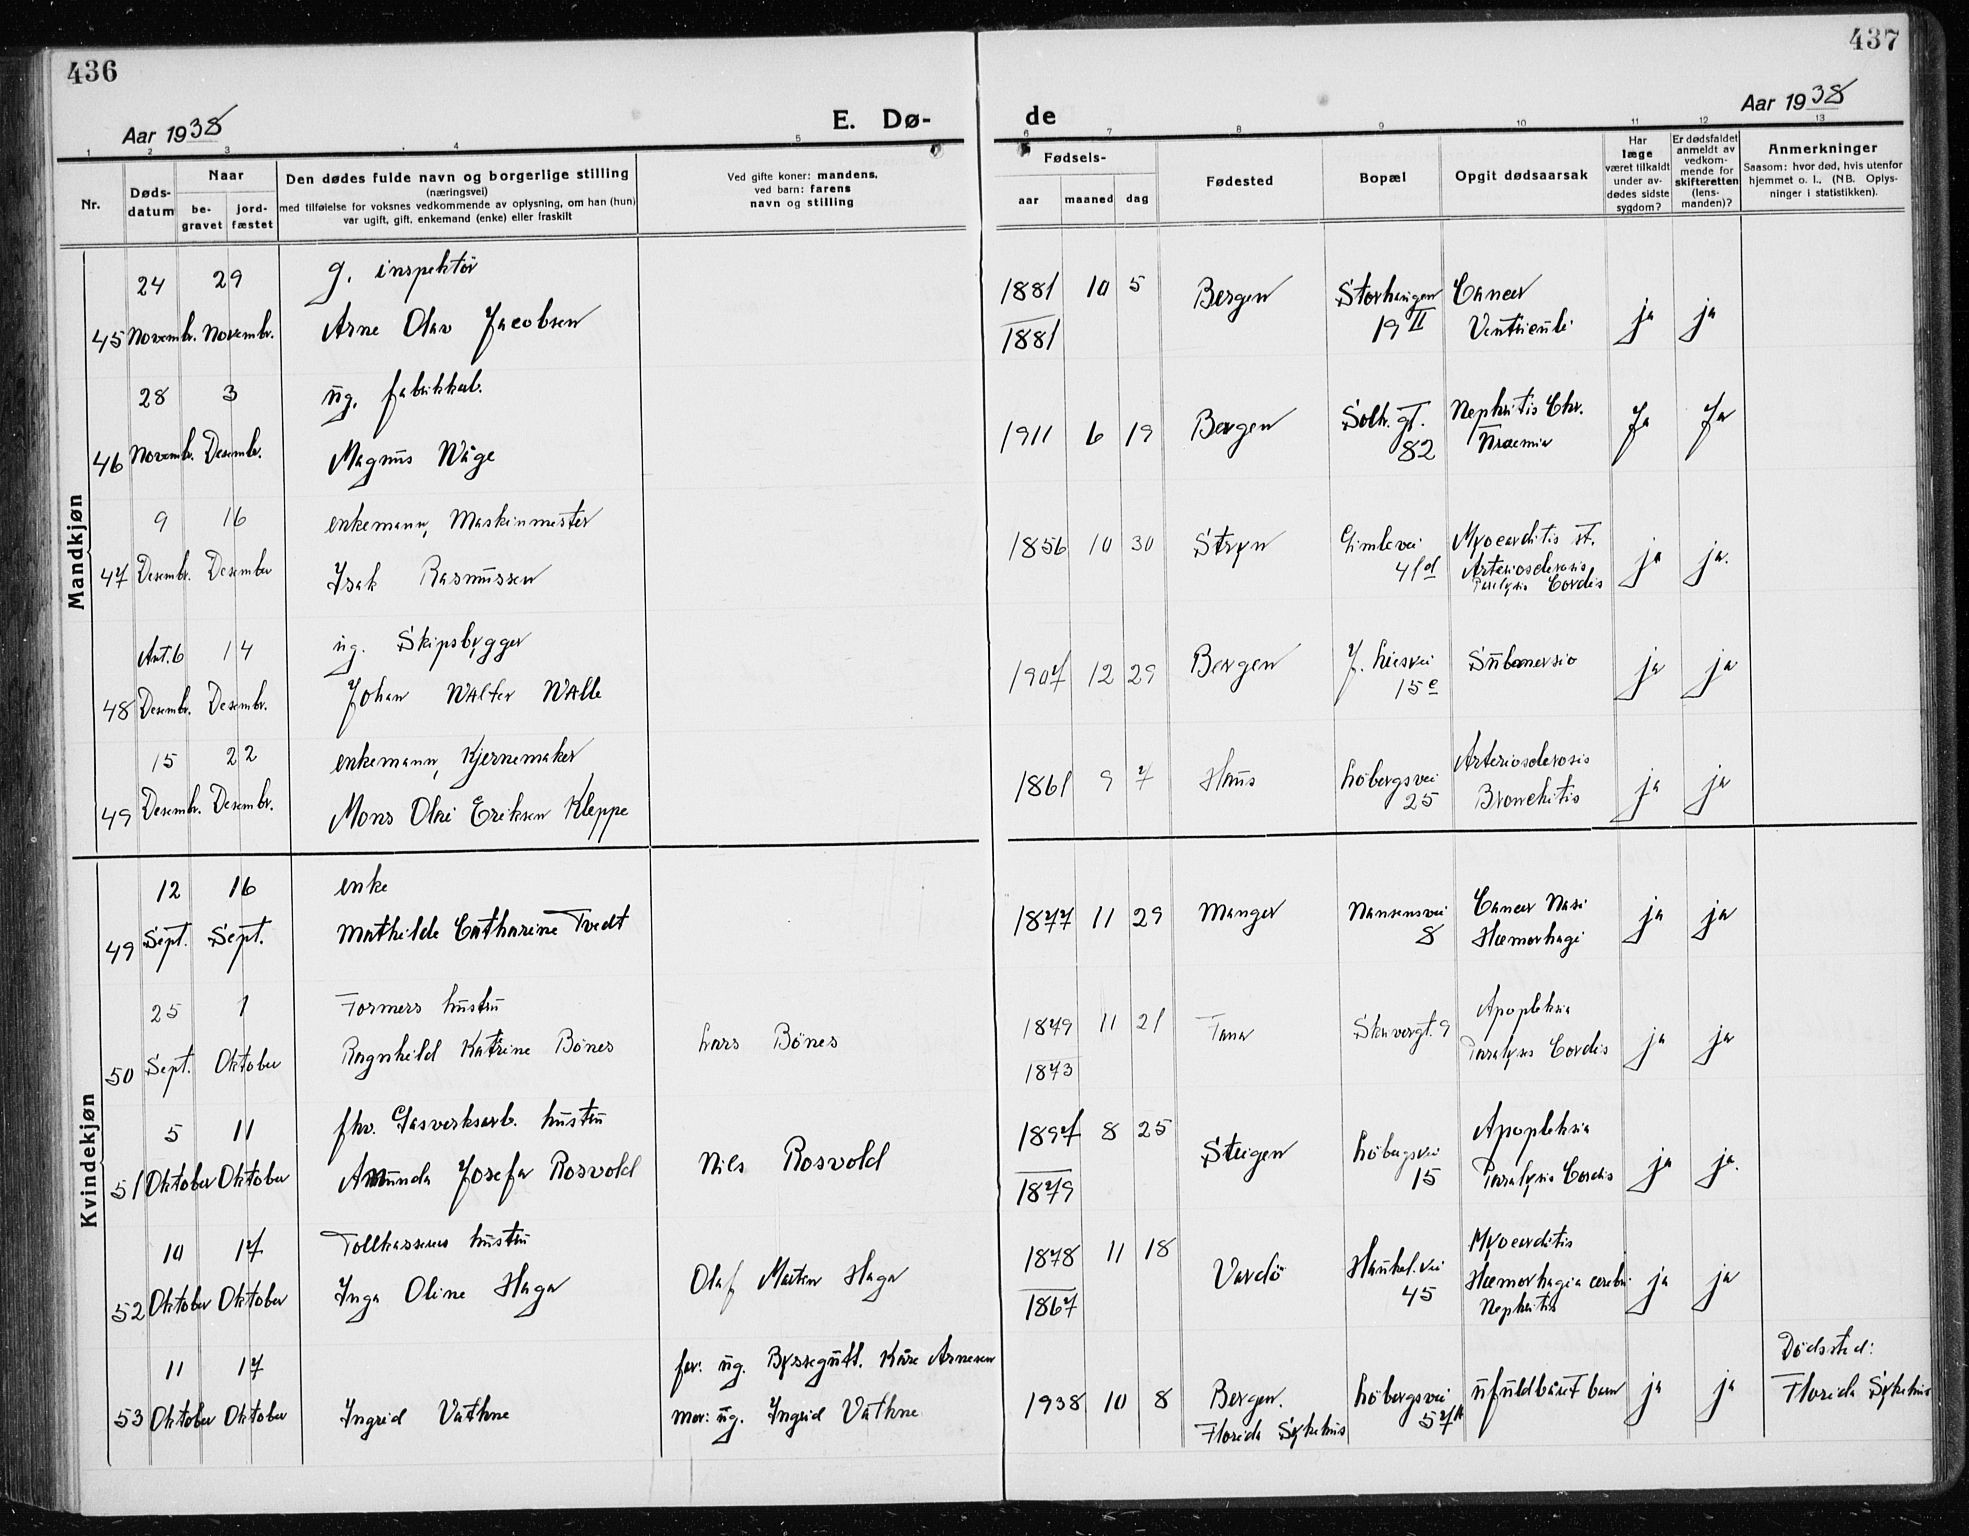 436
437
Aar 1938
E. Dø-
de
Aar 1938
1 2 3 4 5 6 7 8 9 10 11 12 13
Nr.
Døds-
datum
Naar
be-
gravet
jord-
fæstet
Den dødes fulde navn og borgerlige stilling
(næringsvei)
med tilføielse for voksnes vedkommende av oplysning, om han (hun)
var ugift, gift, enkemand (enke) eller fraskilt
Ved gifte koner: mandens,
ved barn: farens
navn og stilling
Fødsels-
aar maaned dag
Fødested
Bopæl
Opgit dødsaarsak
Har
læge
været tilkaldt
under av-
dødes sidste
sygdom?
Er dødsfaldet
anmeldt av
vedkom-
mende for
skifteretten
(lens-
manden)?
Anmerkninger
Saasom: hvor død, hvis utenfor
hjemmet o. l., (NB. Oplys-
ninger i statistikken).
Mandkjøn
24 29 g. inspektør 1881 10 5 Bergen Storhaugen Cancer
45 Novembr. Novembr. Arne Olav Jacobsen 1881 19 II Ventriculi ja ja
28 3 ug. fabrikkarb. 1911 6 19 Bergen Solh. gt. Nephritis Chr. Ja Ja
46 Novembr. Desembr. Magnus Våge 82 Uraemia
9 16 enkemann, Maskinmester 1856 10 30 Stryn Gimlevei Myocarditis
47 Desembr. Desember Isak Rasmussen 41d Arteriosclerosis ja ja.
Paralysis Cordis
Ant. 6 14 ug. Skipsbygger 1907 12 29 Bergen J. Liesvei Submersio ja ja
48 Desembr. Desembr. Johan Walter Walle 15e
15 22 enkemann, Kjernemaker 1861 9 7 Haus Løbergsvei Arteriosclerosis
49 Desembr. Desembr. Mons Olai Eriksen Kleppe 25 Bronchitis ja ja
Kvindekjøn
12 16 enke 1877 11 29 Manger Nansensvei Cancer Nasi ja ja
49 Sept. Sept. Mathilde Catharine Tvedt 8 Hæmorhagi
25 1 Formers hustru 1879 11 21 Fana Skuvergt. 9 Apopleksia
50 Sept. Oktober Ragnhild Katrine Bönes Lars Bönes 1873 Paralyses Cordis ja ja
5 11 fhv. Gasverksarb. hustru 1897 8 25 Steigen Løbergsvei Apopleksia
51 Oktober Oktober Amunda Josefa Rosvold Nils Rosvold 1879 15 Paralysis Cordis ja ja.
10 17 Tollkasserers hustru 1878 11 18 Vardö Haukel. vei Myocarditis
52 Oktober Oktober Inga Oline Haga Olaf Martin Haga 1867 45 Hæmorhagia cerebri ja ja
Nephritis
11 17 far: ug. Byssegutt. Kåre Arnesen Dödssted:
53 Oktober Oktober Ingrid Vathne mor: ug. Ingrid Vathne 1938 10 8 Bergen. Løbergsvei ufuldbåret barn ja ja Florida Sykehus
Florida Sykehus 57A